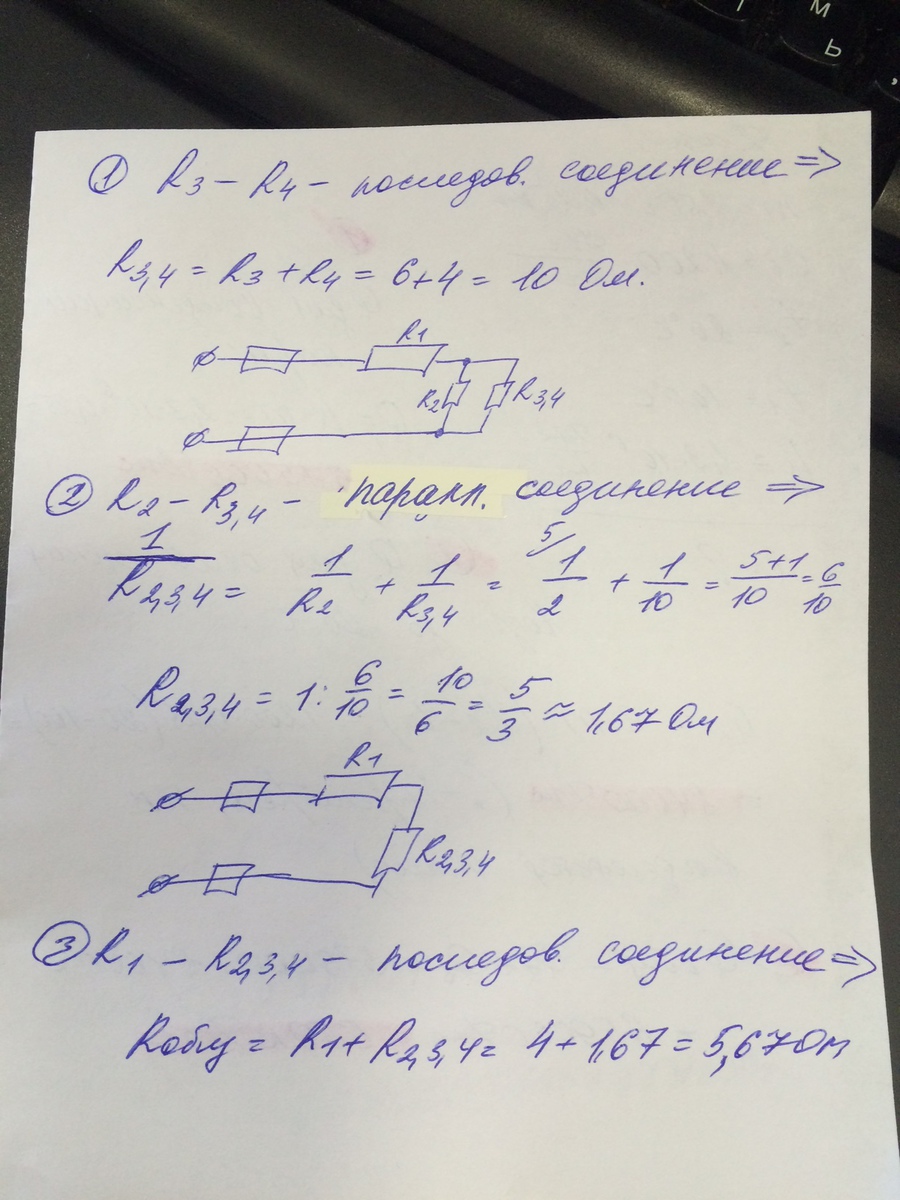 М
Ь
① R3 – R4 – последов. соединение =>
R3,4 = R3 + R4 = 6+4 = 10 Ом.
R1
R2 R3,4
② R2 – R3,4 – паралл. соединение =>
1/R2,3,4 = 1/R2 + 1/R3,4 = 5/ 1/2 + 1/10 = 5+1/10 = 6/10
R2,3,4 = 1: 6/10 = 10/6 = 5/3 ≈ 1,67 Ом
R1
R2,3,4
③ R1 – R2,3,4 – последов. соединение =>
Rобщ = R1 + R2,3,4 = 4 + 1,67 = 5,67 Ом